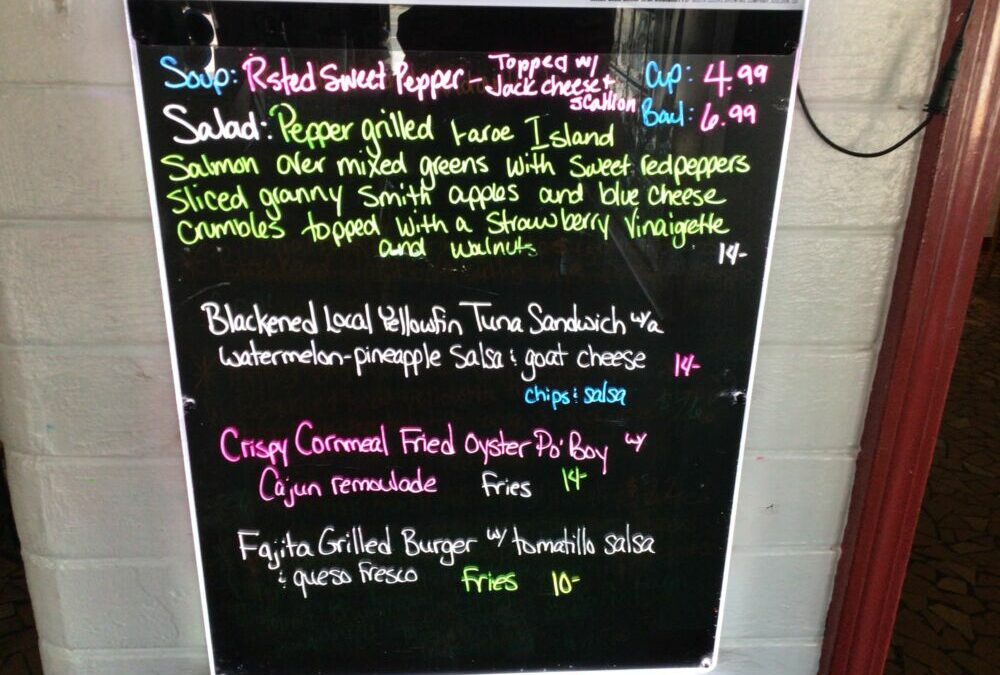 Soup: Rsted Sweet Pepper - Topped w/ Jack cheese + scallion Cup: 4.99
Bowl: 6.99
Salad: Pepper grilled Faroe Island
Salmon over mixed greens with sweet red peppers
sliced granny Smith apples and blue cheese
crumbles topped with a Strawberry Vinaigrette
and walnuts 14-
Blackened Local Yellowfin Tuna Sandwich w/a
watermelon-pineapple Salsa & goat cheese 14-
chips & salsa
Crispy Cornmeal Fried Oyster Po' Boy w/
Cajun remoulade Fries 14-
Fajita Grilled Burger w/ tomatillo salsa
& queso fresco Fries 10-